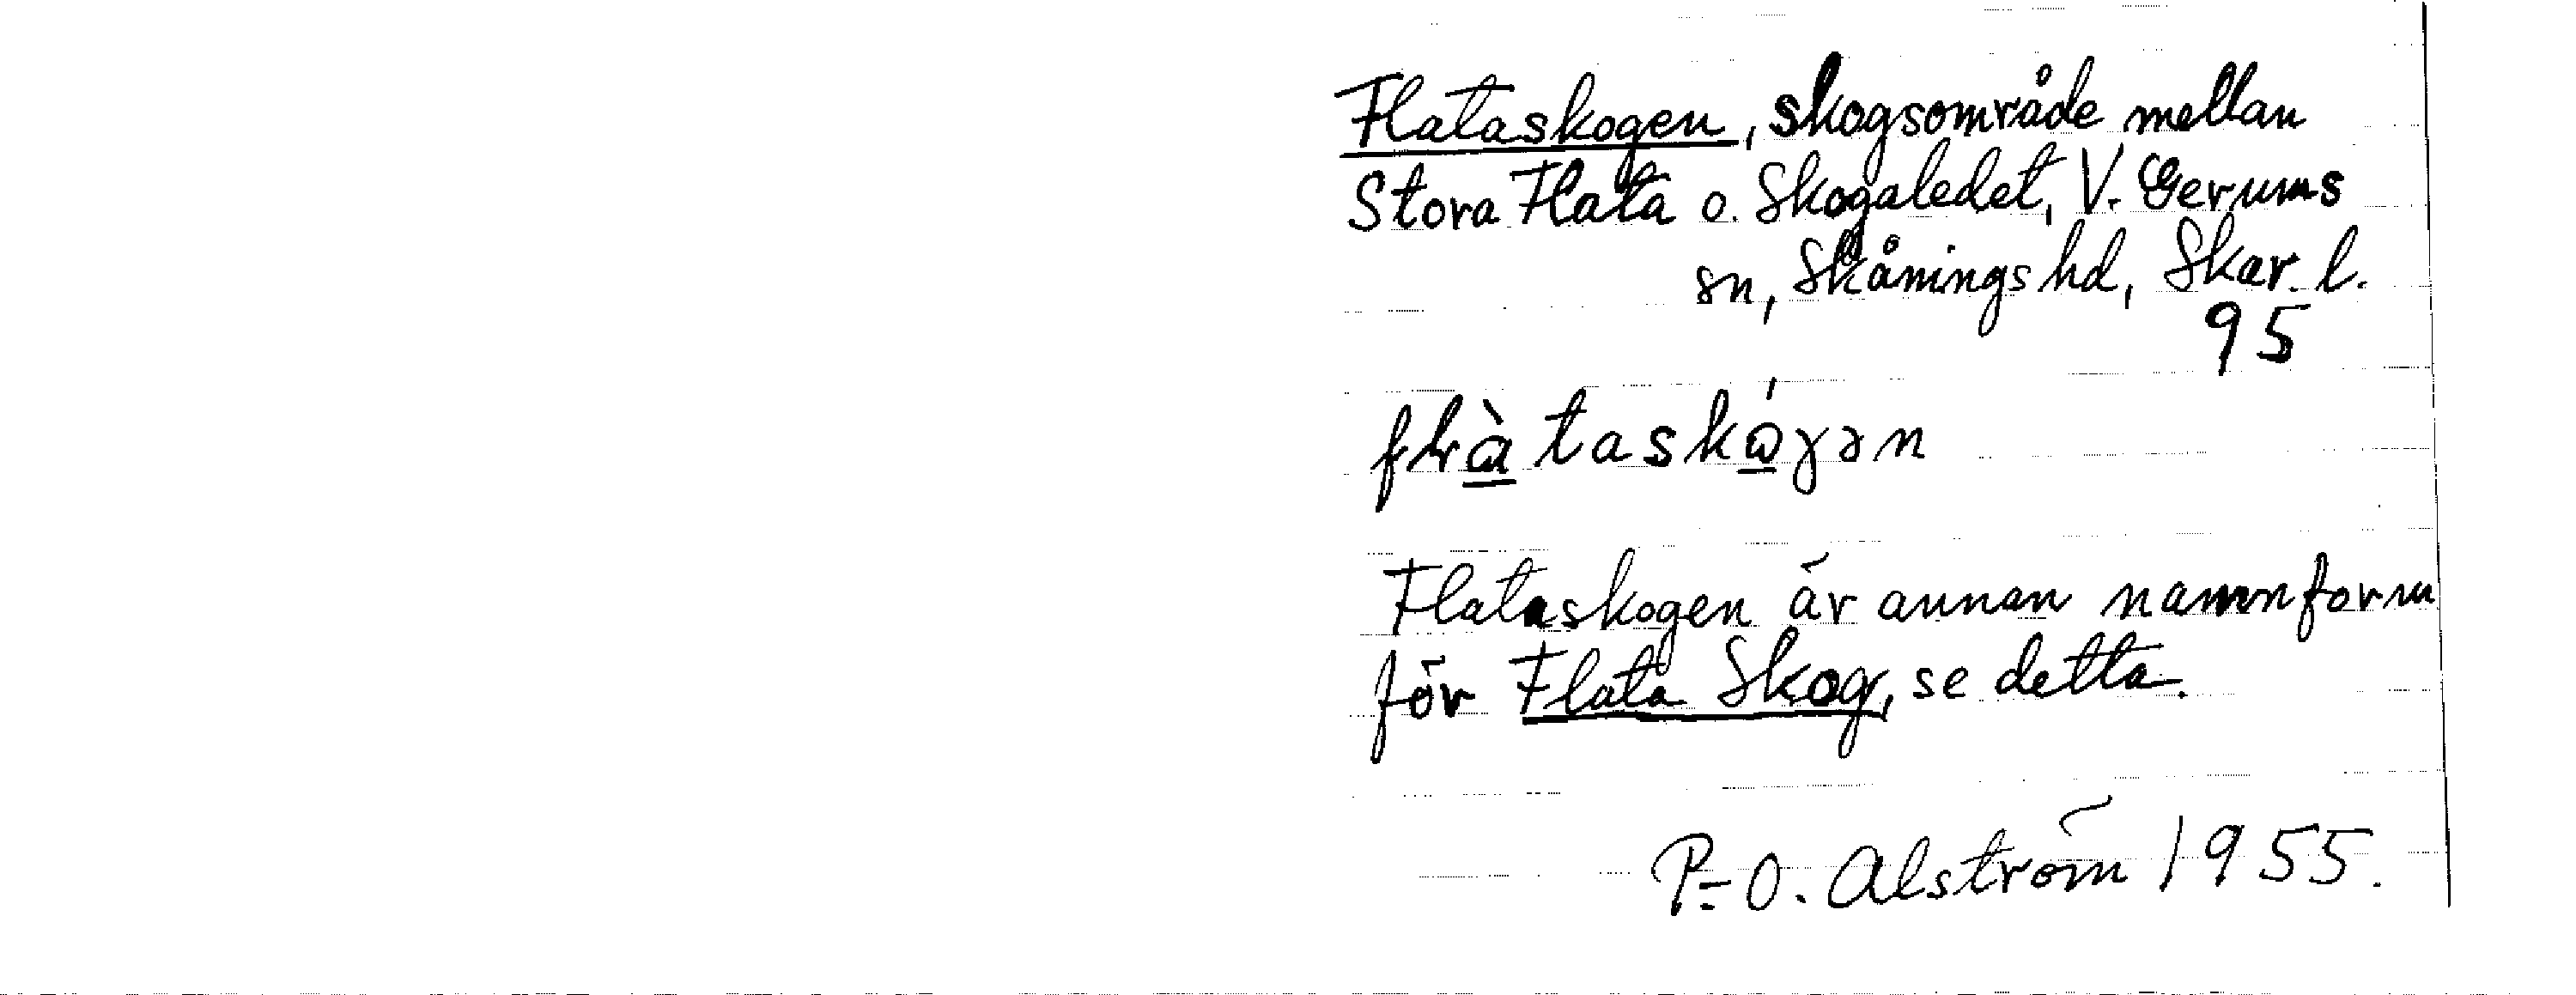 Flataskogen, skogsområde mellan
Stora Flata o. Skogaledet, V. Gerums
sn, Skånings hd, Skar. l.
95
Flataskogen är annan namnform
för Flata Skog, se detta.
P.-O. Alström 1955.